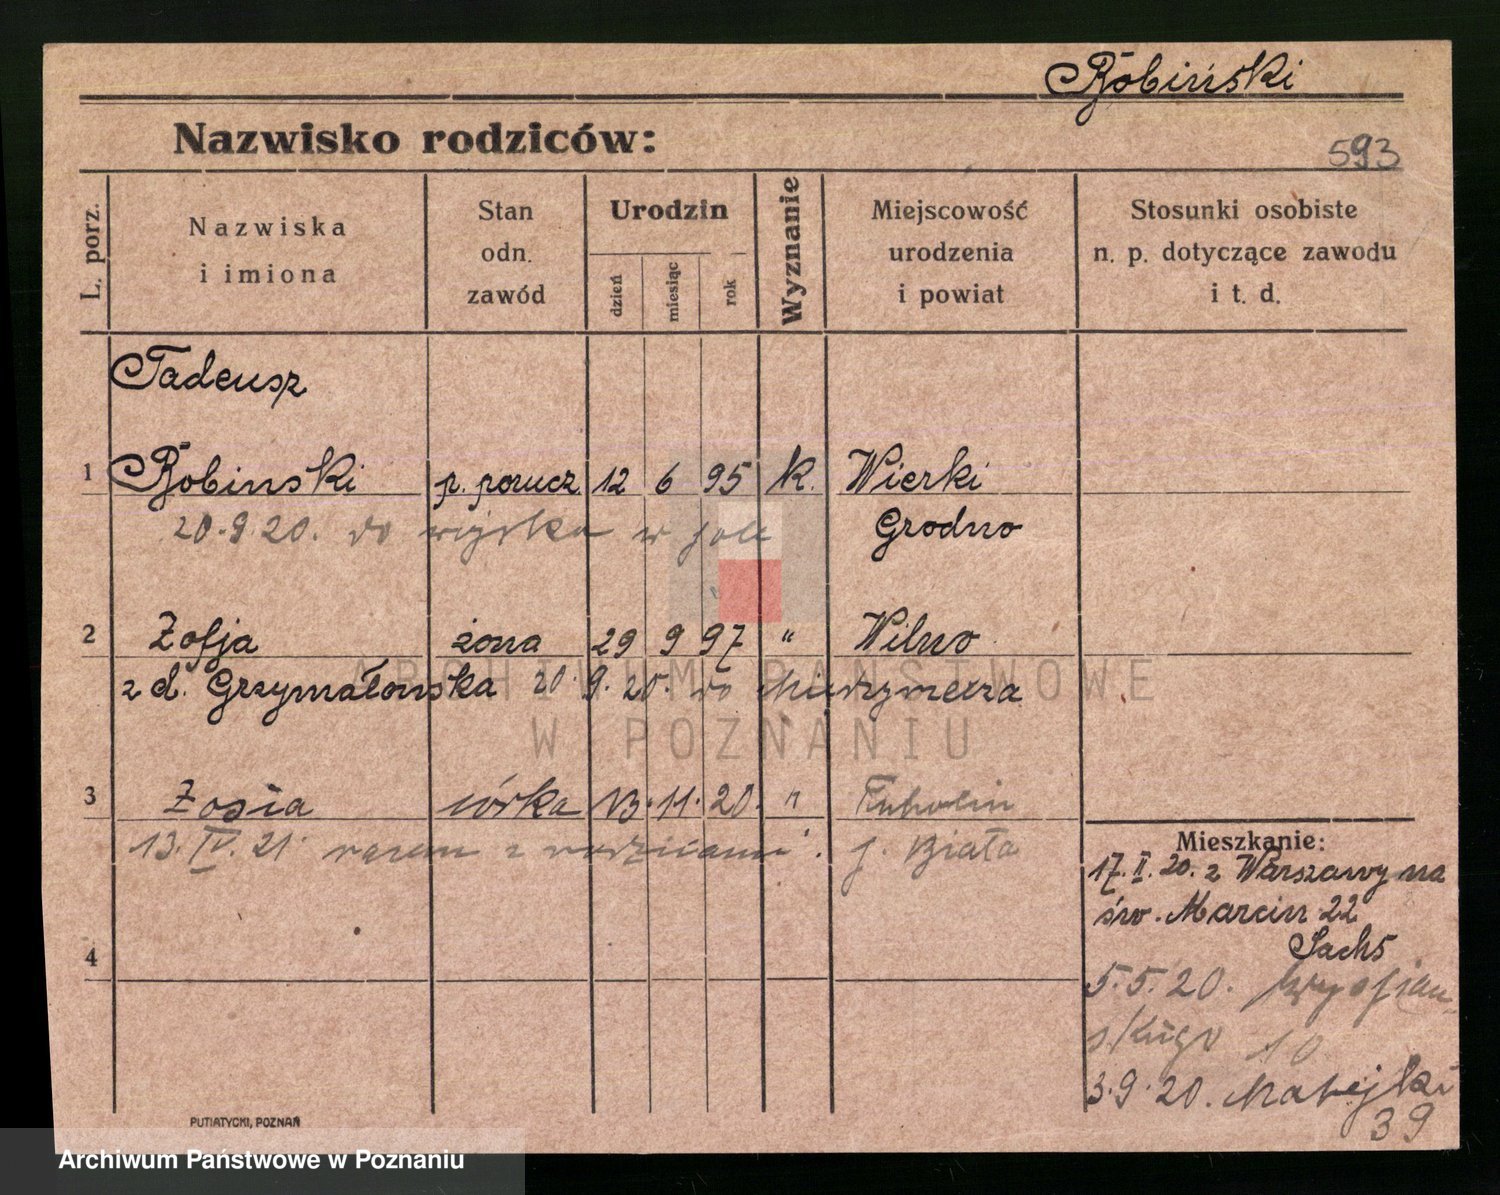 Robiński
Nazwisko rodziców:
593
L. porz.
Nazwiska
i imiona
Stan
odn.
zawód
Urodzin
dzień
miesiąc
rok
Wyznanie
Miejscowość
urodzenia
i powiat
Stosunki osobiste
n. p. dotyczące zawodu
i t. d.
Tadeusz
1 Robinski p. porucz. 12 6 95 k. Wierki
20.9.20. do wojska w pole Grodno
2 Zofja żona 29 9 97 " Wilno
z d. Grzymałowska 20.9.20. do Międzyrzecza
3 Zosia córka 13.11.20. "
13.IV.21. razem z rodzicami. p. Biała
4
Mieszkanie:
17.II.20. z Warszawy na
św. Marcin 22
Sachs
5.5.20. Wyspiań-
skiego 10
3.9.20. Matejki
39
PUTIATYCKI, POZNAŃ
ARCHIWUM PAŃSTWOWE
W POZNANIU
Archiwum Państwowe w Poznaniu